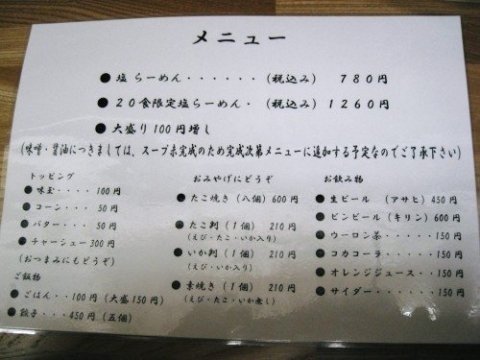 メニュー
●塩らーめん・・・・・・(税込み) 780円
●20食限定塩らーめん・(税込み) 1260円
●大盛り100円増し
(味噌・醤油につきましては、スープ未完成のため完成次第メニューに追加する予定なのでご了承下さい)
トッピング
●味玉・・・・100円
●コーン・・・50円
●バター・・・50円
●チャーシュー300円
(おつまみにもどうぞ)
ご飯物
●ごはん・・100円(大盛150円)
●餃子・・・450円(五個)
おみやげにどうぞ
●たこ焼き(八個)600円
●たこ判(1個)210円
(えび・たこ・いか入り)
●いか判(1個)210円
(えび・いか入り)
●素焼き(1個)210円
(えび・たこ・いか無し)
お飲み物
●生ビール(アサヒ)450円
●ビンビール(キリン)600円
●ウーロン茶・・・・150円
●コカコーラ・・・・150円
●オレンジジュース・・150円
●サイダー・・・・・150円